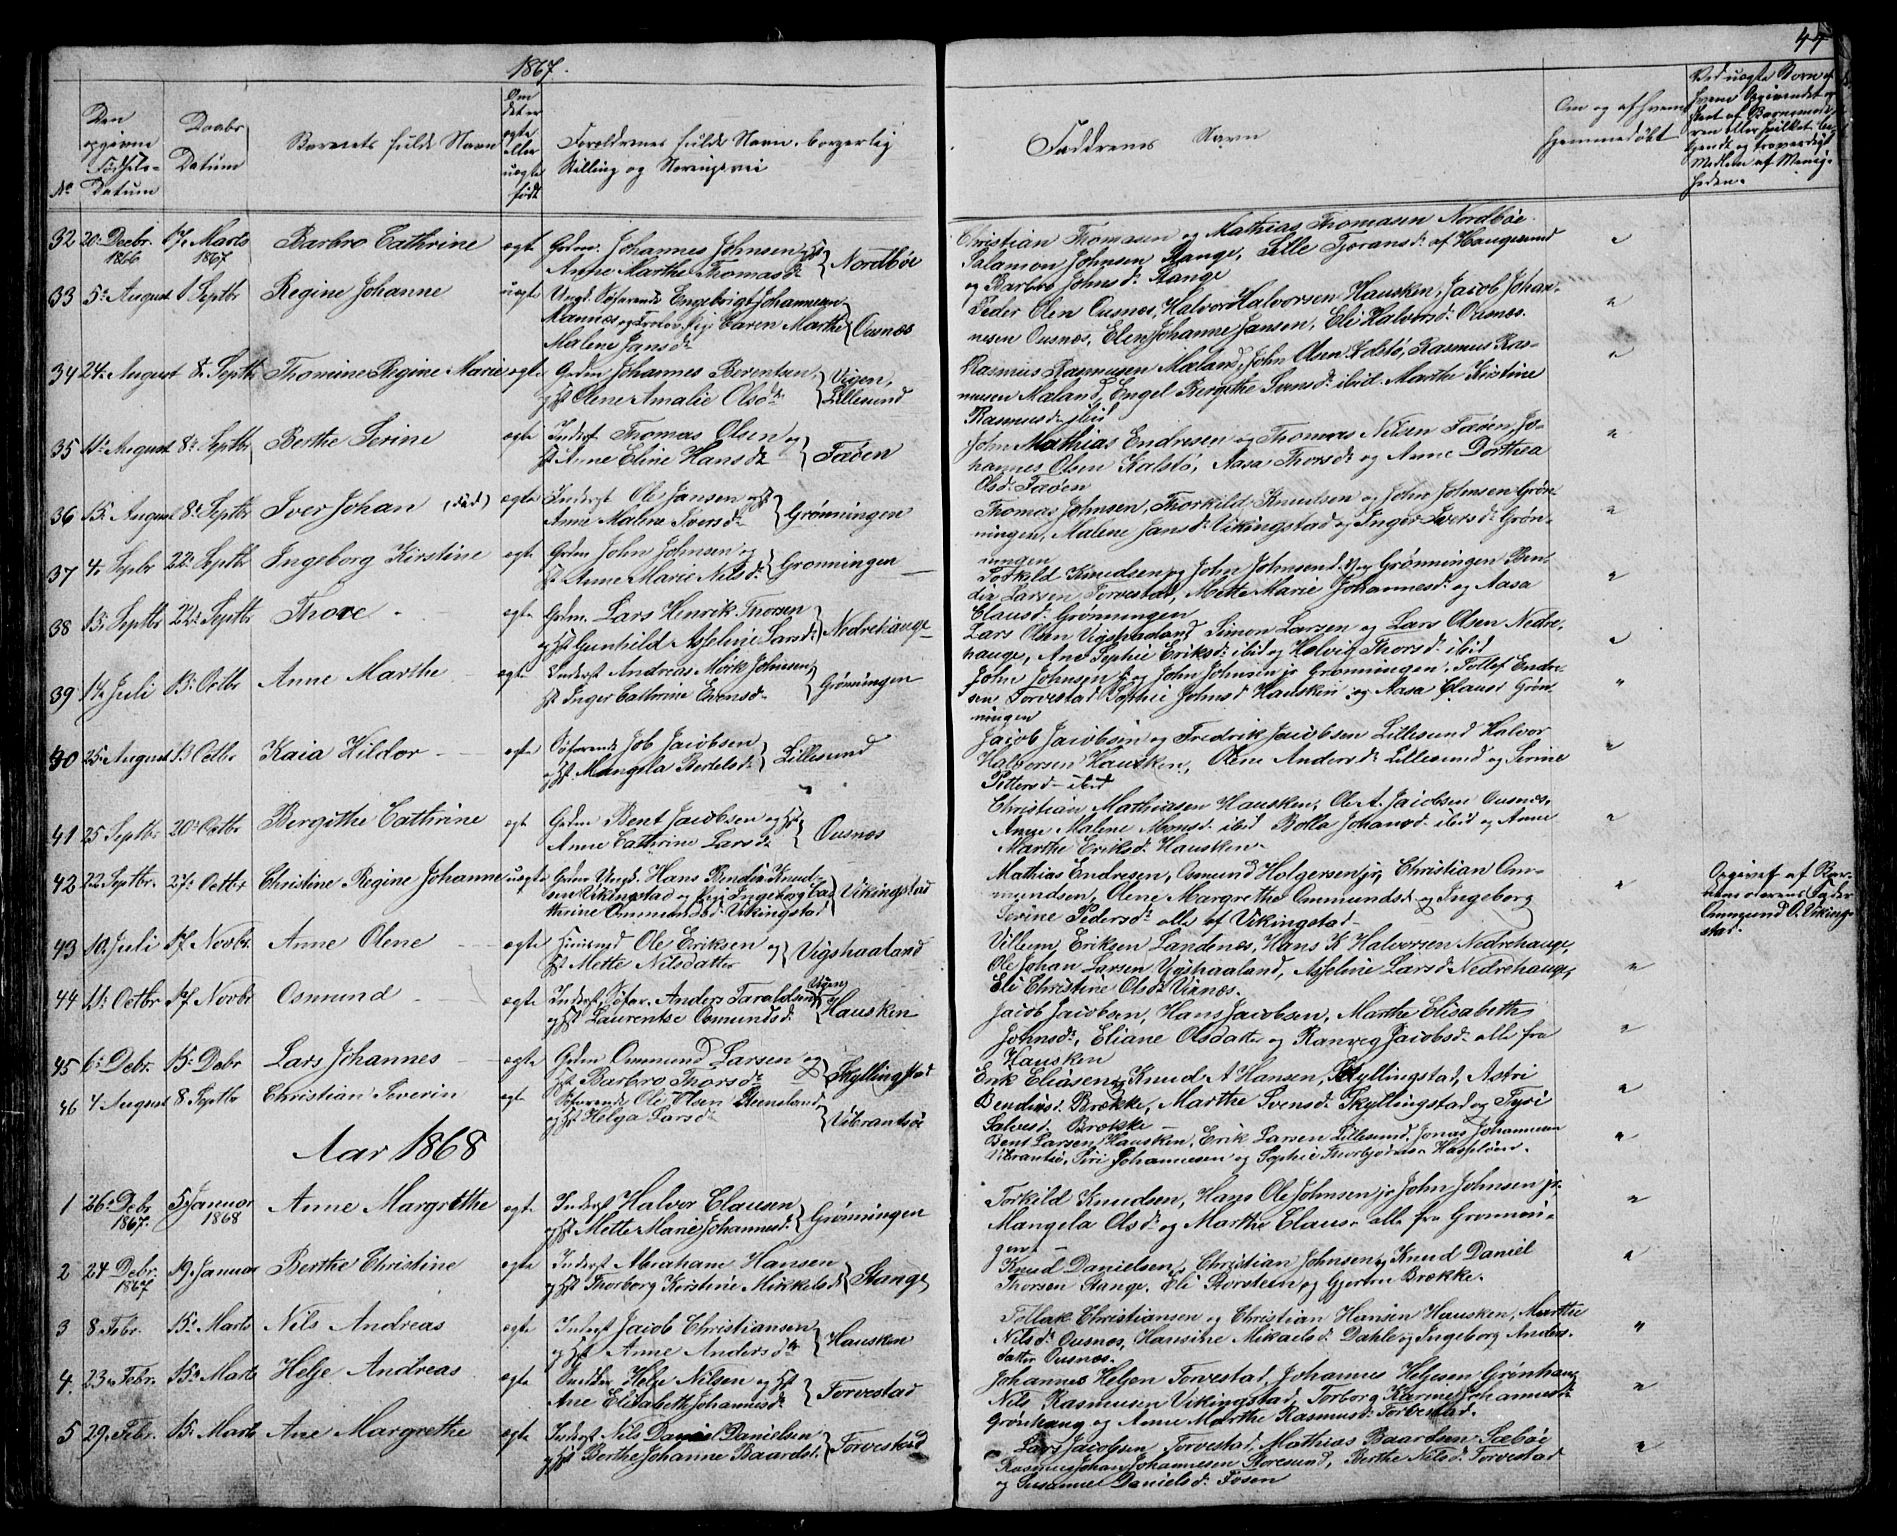 44
1867.
No
Den opgivne Fødsels-Datum
Daabs Datum
Barnets fulde Navn
Om det er ægte eller uægte født
Forældrenes fulde Navn, borgerlig Stilling og Næringsvei
Faddrenes Navn
Om og af hvem hjemmedøbt
Ved uægte Børn af hvem Opgivendet er
32 20 Decbr. 1866 17. Marts 1867 Barbro Cathrine ægte Gdm. Johannes Johnsen og Hst
Anne Marthe Thomasd. Nordbøe
Christian Thomasen og Mathias Thomasen Nordbøe.
Salamon Johnsen Stange, Lille Tjøransd. af Haugesund
og Barbro Johnsd. Stange
33 5. August 1 Septbr Regine Johanne uægte Ungk. Søfarende Engebrigt Johannesen
Mannes og Pige Caren Marthe Malene Jansd. Ousnes
Peder Olen Ousnes, Halvor Halvorsen Hausken, Jacob Johan-
nesen Ousnes, Elen Johanne Jansen, Eli Halvorsd. Ousnes.
34 24. August 8. Septbr Thomine Regine Marie ægte Gdm Johannes Berentsen
og Hst Olene Amalie Olsd. Vigen, Lillesund
Rasmus Rasmusen Mæland, John Olsen Kolstø, Rasmus Ras-
musen Mæland, Engel Bergithe Svensd. ibid. Marthe Kirstine
Rasmusd. ibid
35 11. August 8. Septbr Berthe Serine ægte Inderst Thomas Olsen og
Hst Anne Eline Hansd. Faøen
John Mathias Endresen og Thomas Nilsen Faøen, Jo-
hannes Olsen Kalstø, Aasa Thorsd. og Anne Dorthea
Olsd. Faøen
36 15. August 8. Septbr Iver Johan (død) ægte Inderst Ole Jansen og Hst
Anne Malene Iversd. Grønningen
Thomas Johnsen, Thorkild Knudsen og John Johnsen Grøn-
ningen, Malene Jansd. Vikingstad og Inger Iversd. Grøn-
ningen
37 4. Septbr 22. Septbr Ingeborg Kirstine ægte Gdm John Johnsen og
Hst Anne Marie Nilsd. Grønningen
Torkild Knudsen og John Johnsen d. y. Grønningen Ben-
dix Larsen Torvestad, Mette Marie Johannesd. og Aasa
Clausd. Grønningen
38 15. Septbr 22. Septbr Thore ægte Gdm. Lars Henrik Thorsen
og Hst Gunhild Asseline Larsd. Nedrehauge
Lars Olsen Vigshaaland Simon Larsen og Lars Olsen Nedre-
hauge, Ane Sophie Eriksd. ibid og Helvig Thorsd. ibid
39 14 Juli 13. Octbr Anne Marthe ægte Inderst Andreas Mørk Johnsen
Hst Inger Cathrine Evensd. Grønningen
John Johnsen og John Johnsen jr Grønningen, Tollef Endre-
sen Torvestad Sophie Johnsd Hausken og Aasa Clausd Grøn-
ningen
40 25. August 13 Octbr Kaia Hildor ægte Søfarende Job Jacobsen
og Hst Mangela Bertelsd. Lillesund
Jacob Jacobsen og Fredrik Jacobsen Lillesund Halvor
Halvorsen Hausken, Olene Andersd. Lillesund og Serine
Pettersd. ibid
41 25 Septbr 20. Octbr Bergithe Cathrine ægte Gdm Bent Jacobsen og Hst
Anne Cathrine Larsd. Ousnes
Christian Mathiasen Hausken, Ole A. Jacobsen Ousnes,
Anne Malene Monsd. ibid Bolla Johansd. ibid og Anne
Marthe Eriksd. Hausken
42 22 Septbr. 27. Octbr Christine Regine Johanne uægte Ungk. Hans Bendix Knud-
sen Vikingstad og Pige Ingeborg Ca-
thrine Ommundsd. Vikingstad Vikingstad
Mathias Endresen, Osmund Holgersen jr, Christian Om-
mundsen, Olene Margrethe Ommundsd. og Ingeborg
Serine Pedersd. alle af Vikingstad
Opgivet af Bar-
nets moders Fader
Ommund O. Viking-
stad.
43 10. Juli 17. Novbr. Anne Olene ægte Huusmd Ole Eriksen og
Hst Mette Nilsdatter Vigshaaland
Villum Eriksen Landenes, Hans K Halvorsen Nedrehauge,
Ole Johan Larsen Vigshaaland, Asseline Larsd. Nedrehauge,
Eli Christine Olsd. Visnes.
44 11. Octbr 17 Novbr Osmund ægte Inderst, Søfar. Anders Taraldsen
og Hst Laurentse Osmundsd. Hausken
Jacob Jacobsen, Hans Jacobsen, Marthe Elisabeth
Johnsd., Eliane Olsdatter og Ranveg Jacobsd. alle fra
Hausken
45 6. Debr. 15. Debr Lars Johannes ægte Gdm Ommund Larsen og
Hst Barbro Thorsd. Skyllingstad
Erik Eliasen, Knud A Hansen, Skyllingstad, Astri
Bendixsd. Brække, Marthe Svensd. Skyllingstad og Tyri
Salvesd. Brække
46 4 August 8 Septbr Christian Severin ægt Søfarende Ole Olsen
og Hst Helga Larsd. Vibrantsøe
Bent Larsen Hausken, Erik Larsen Lillesund, Jonas Johannesen
Vibrantsø, Siri Johannesen og Sophie Thorbjørns. Hasseløen.
Aar 1868
1 26. Debr 1867. 5 Januar 1868 Anne Margrethe ægte Inderst Halvor Clausen
og Hst Mette Marie Johannesd. Grønningen
Torkild Knudsen, Hans Ole Johnsen jr John Johnsen jr.
Mangela Olsd. og Marthe Claus. alle fra Grønnin-
gen
2 24 Debr. 1867 19. Januar Berthe Christine ægte Inderst Abraham Hansen
og Hst Thorborg Kirstine Mikkelsd. Stange
Knud Danielsen, Christian Johnsen, Knud Daniel
Thorsen Stange, Eli Storsteen, og Gjertru Brække.
3 8 Febr. 15. Marts Nils Andreas ægte Inderst Jacob Christiansen
og Hst Anne Andersd. Hausken
Tollak Christiansen og Christian Hansen Hausken, Marthe
Nilsd. Ousnes, Hansine Mikaelsd. Dahle og Ingeborg Anders-
datter Ousnes.
4. 23. Febr. 15. Marts Helje Andreas ægte Helje Nilsen og Hst
Ane Elisabeth Johannesd. Torvestad
Johannes Heljen Torvestad, Johannes Heljesen Grønhaug
Nils Rasmusen Vikingstad, Torborg Karine Johannesd.
Grønhaug og Anne Marthe Rasmusd. Torvestad.
5 29. Febr. 15. Marts Ane Margrethe ægte Inderst Nils Daniel Danielsen
og Hst Berthe Johanne Baardsd. Torvestad
Lars Jacobsen Torvestad, Mathias Baardsen Sæbøe
Rasmus Johan Johannesen Storesund, Berthe Nilsd. Torvestad
og Susanne Danielsd. Fosen